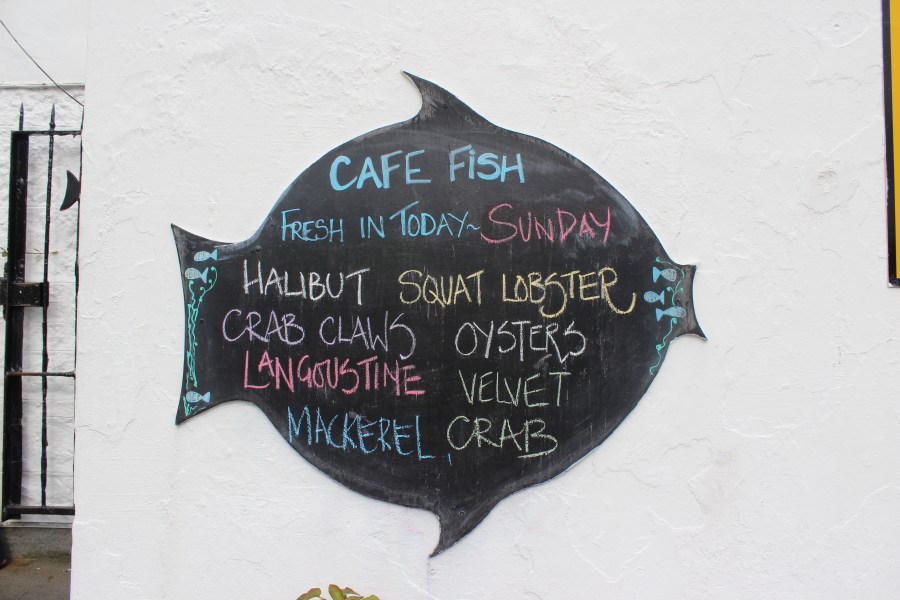 CAFE FiSH
FRESH IN TODAY~ SUNDAY
HALIBUT SQUAT LOBSTER
CRAB CLAWS OYSTERS
LANGOUSTINE VELVET
MACKEREL CRAB